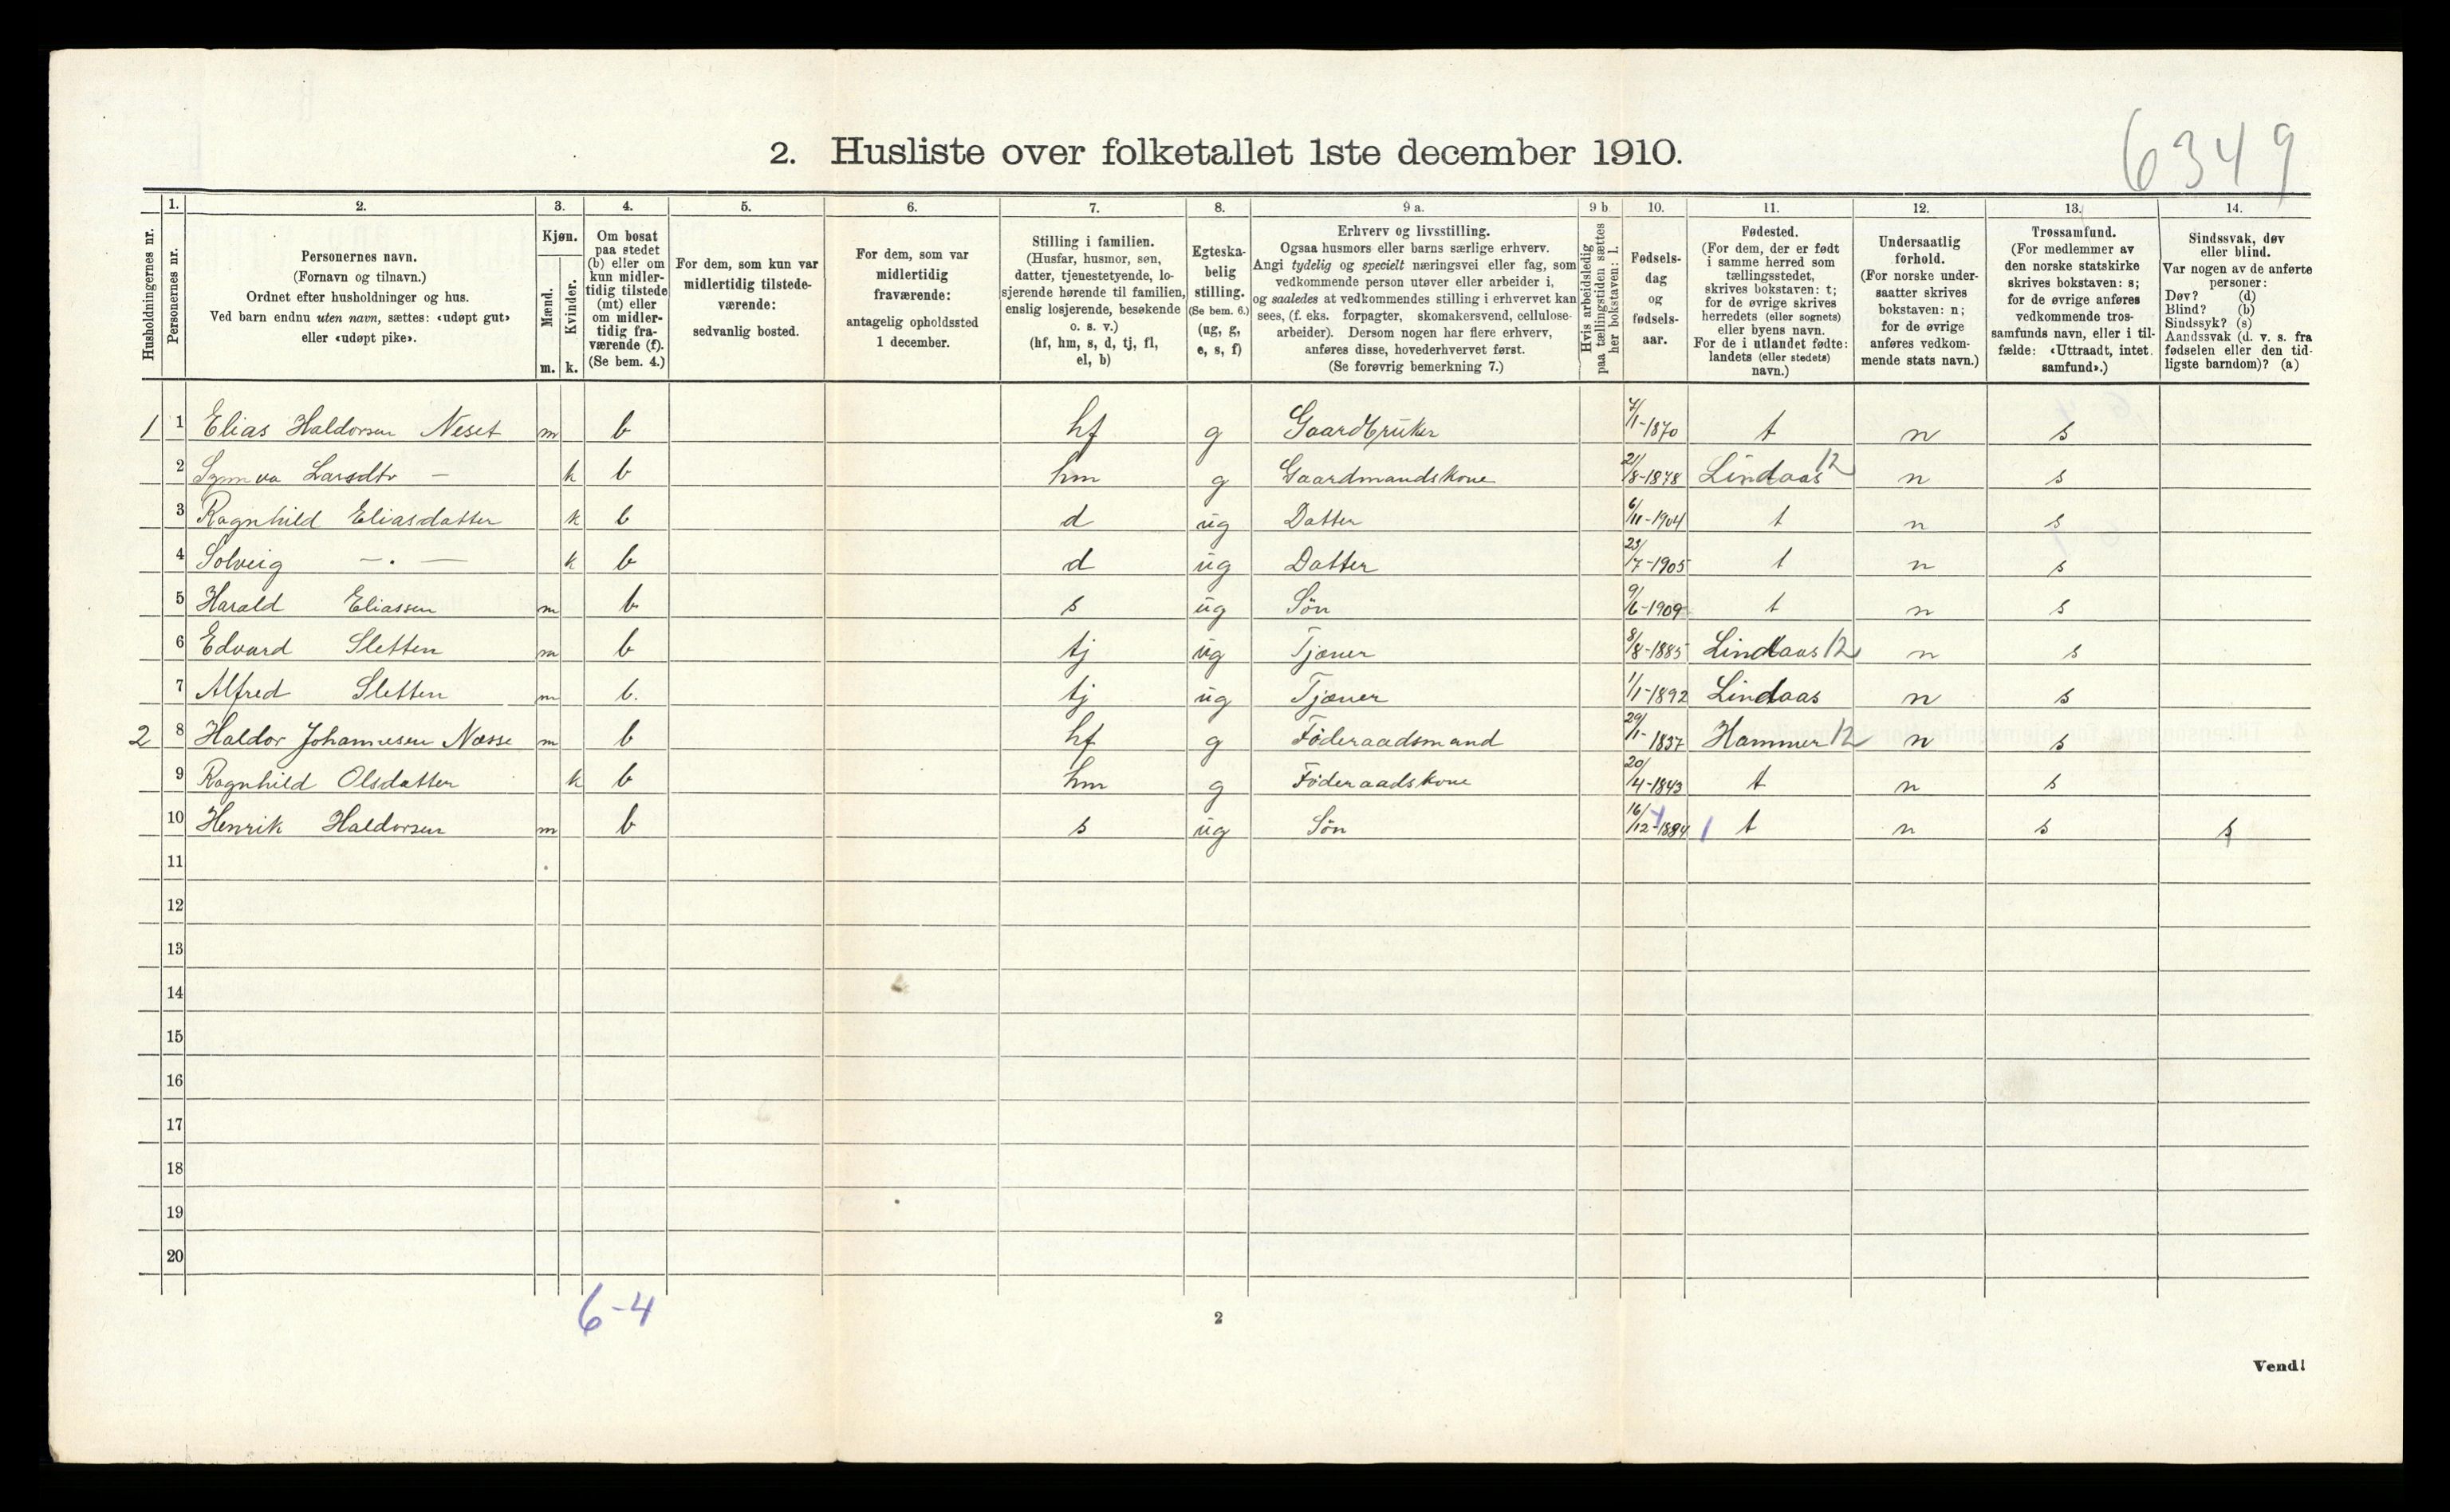 6349
2. Husliste over folketallet 1ste december 1910.
Husholdningernes nr.
1. Personernes nr.
2. Personernes navn. (Fornavn og tilnavn.) Ordnet efter husholdninger og hus. Ved barn endnu uten navn, sættes: «udøpt gut» eller «udøpt pike».
3. Kjøn. Mænd. m. Kvinder. k.
4. Om bosat paa stedet (b) eller om kun midlertidig tilstede (mt) eller om midlertidig fraværende (f). (Se bem. 4.)
5. For dem, som kun var midlertidig tilstedeværende: sedvanlig bosted.
6. For dem, som var midlertidig fraværende: antagelig opholdssted 1 december.
7. Stilling i familien. (Husfar, husmor, søn, datter, tjenestetyende, losjerende hørende til familien, enslig losjerende, besøkende o. s. v.) (hf, hm, s, d, tj, fl, el, b)
8. Egteskabelig stilling. (Se bem. 6.) (ug, g, e, s, f)
9 a. Erhverv og livsstilling. Ogsaa husmors eller barns særlige erhverv. Angi tydelig og specielt næringsvei eller fag, som vedkommende person utøver eller arbeider i, og saaledes at vedkommendes stilling i erhvervet kan sees, (f. eks. forpagter, skomakersvend, cellulosearbeider). Dersom nogen har flere erhverv, anføres disse, hovederhvervet først. (Se forøvrig bemerkning 7.)
9 b. Hvis arbeidsledig paa tællingstiden sættes her bokstaven: l.
10. Fødselsdag og fødselsaar.
11. Fødested. (For dem, der er født i samme herred som tællingsstedet, skrives bokstaven: t; for de øvrige skrives herredets (eller sognets) eller byens navn. For de i utlandet fødte: landets (eller stedets) navn.)
12. Undersaatlig forhold. (For norske undersaatter skrives bokstaven: n; for de øvrige anføres vedkommende stats navn.)
13. Trossamfund. (For medlemmer av den norske statskirke skrives bokstaven: s; for de øvrige anføres vedkommende trossamfunds navn, eller i tilfælde: «Uttraadt, intet samfund».)
14. Sindssvak, døv eller blind. Var nogen av de anførte personer: Døv? (d) Blind? (b) Sindssyk? (s) Aandssvak (d. v. s. fra fødselen eller den tidligste barndom)? (a)
1 1 Elias Haldorsen Neset m b hf g Gaardbruker 7/1-1870 t n s
2 Synnva Larsdtr — k b hm g Gaardmandskone 21/8-1878 Lindaas 12 n s
3 Ragnhild Eliasdatter k b d ug Datter 6/11-1904 t n s
4 Solveig — . — k b d ug Datter 23/7-1905 t n s
5 Harald Eliassen m b s ug Søn 9/6-1909 t n s
6 Edvard Sletten m b tj ug Tjæner 8/8-1885 Lindaas 12 n s
7 Alfred Sletten m b. tj ug Tjæner 1/1-1892 Lindaas n s
2 8 Haldor Johannesen Næsse m b hf g Föderaadsmand 29/1-1837 Hammer 12 n s
9 Ragnhild Olsdatter k b hm g Föderaadskone 20/4-1843 t n s
10 Henrik Haldorsen m b s ug Søn 16/12-1884 t n s s
11
12
13
14
15
16
17
18
19
20
6-4
2
Vend!